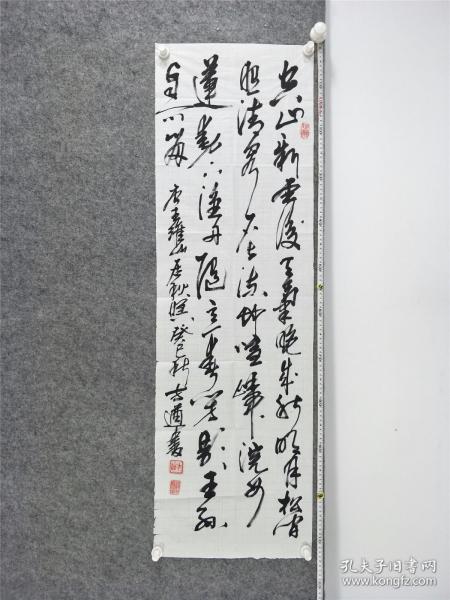 空山新雨後天氣晚来秋明月松间
照清泉石上流竹喧歸浣女
蓮動下漁舟随意春芳歇王孫
自可留 唐王維山居秋暝 癸巳秋
孔夫子旧书网
www.kongfz.com